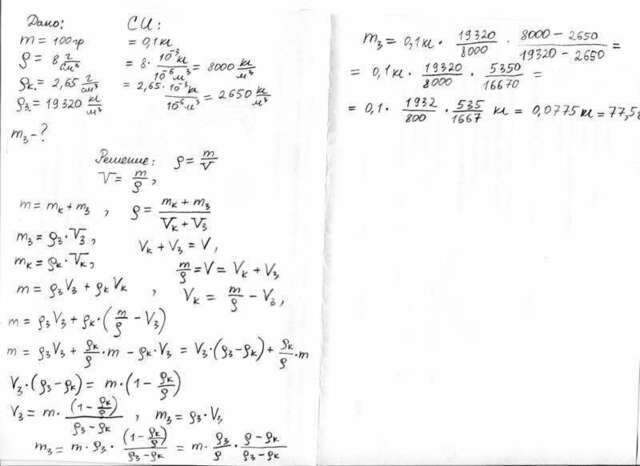 Дано: СИ:
m = 100гр = 0,1кг
ρ = 8 г/см³ = 8 · 10⁻³кг/10⁻⁶м³ = 8000 кг/м³
ρк = 2,65 г/см³ = 2,65 · 10⁻³кг/10⁻⁶м³ = 2650 кг/м³
ρз = 19320 кг/м³
mз - ?
Решение: ρ = m/V
V = m/ρ ,
m = mк + mз , ρ = (mк + mз)/(Vк + Vз)
mз = ρз · Vз , Vк + Vз = V,
mк = ρк · Vк , m/ρ = V = Vк + Vз,
m = ρзVз + ρкVк , Vк = m/ρ - Vз,
m = ρзVз + ρк · (m/ρ - Vз)
m = ρзVз + ρк/ρ · m - ρк · Vз = Vз · (ρз - ρк) + ρк/ρ · m
Vз · (ρз - ρк) = m · (1 - ρк/ρ)
Vз = m · (1 - ρк/ρ)/(ρз - ρк) , mз = ρз · Vз
mз = m · ρз · (1 - ρк/ρ)/(ρз - ρк) = m · ρз/ρ · (ρ - ρк)/(ρз - ρк)
mз = 0,1кг · 19320/8000 · (8000 - 2650)/(19320 - 2650) =
= 0,1кг · 19320/8000 · 5350/16670 =
= 0,1 · 1932/800 · 535/1667 кг = 0,0775кг = 77,5г